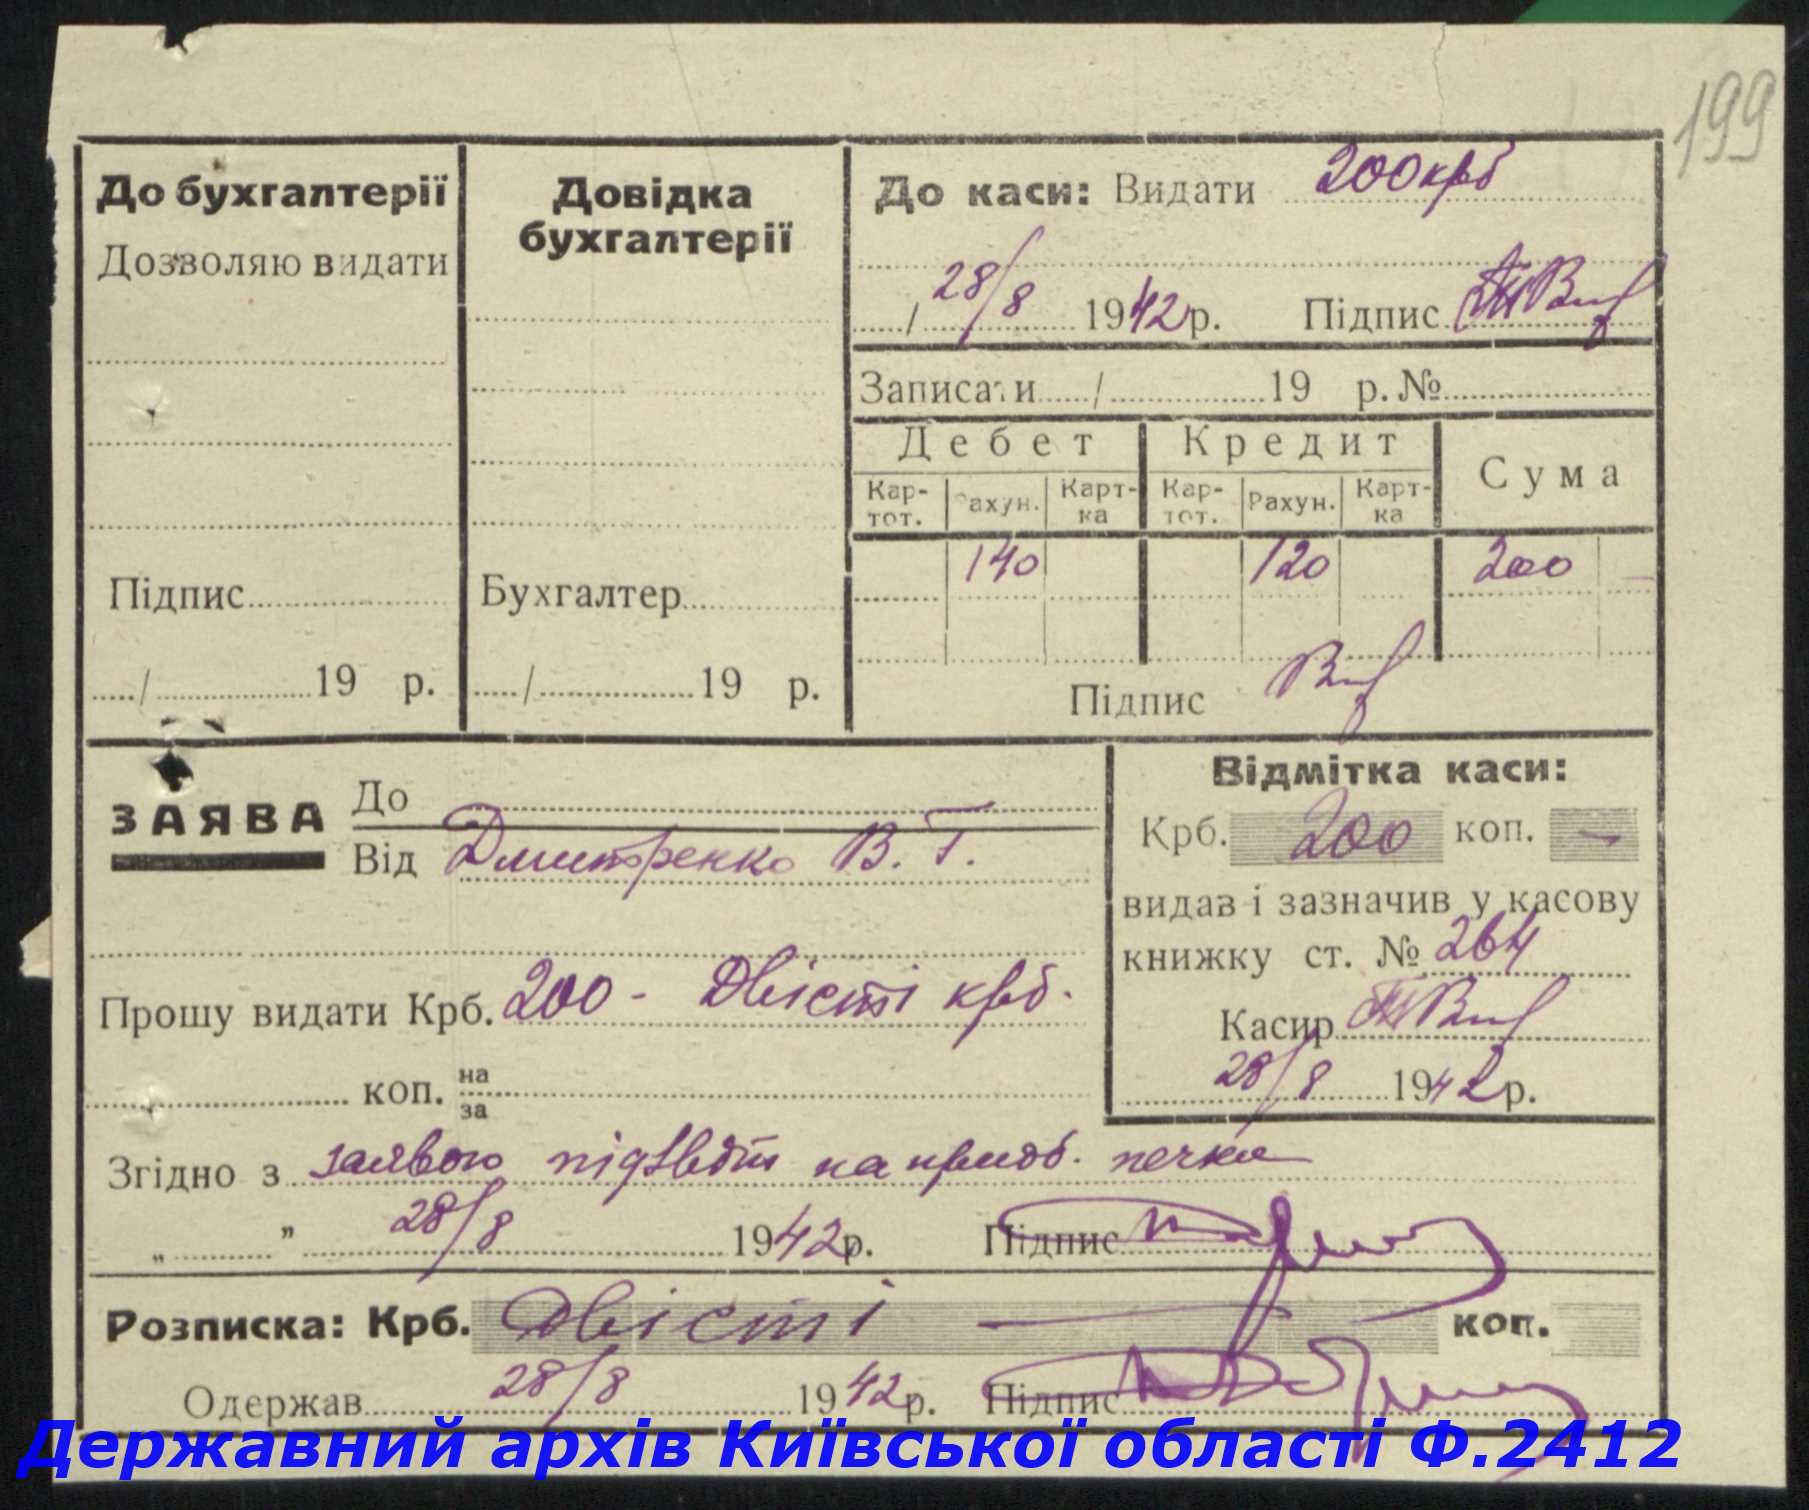 199
До бухгалтерії
Дозволяю видати
Підпис
/ 19 р.
Довідка
бухгалтерії
Бухгалтер
/ 19 р.
До каси: Видати 200 крб
/ 28/8 1942 р. Підпис
Записати / 19 р. №
Дебет Кредит Сума
Кар-тот. Рахун. Карт-ка Кар-тот. Рахун. Карт-ка
140 120 200 —
Підпис
ЗАЯВА
До
Від Дмитренко В. Г.
Прошу видати Крб. 200 - Двісті крб.
коп. на
за
Відмітка каси:
Крб. 200 коп. —
видав і зазначив у касову
книжку ст. № 264
Касир
28/8 1942 р.
Згідно з заявою підзвіт на придб. печки
„ ” 28/8 1942 р. Підпис
Розписка: Крб. Двісті — коп.
Одержав 28/8 1942 р. Підпис
Державний архів Київської області Ф.2412